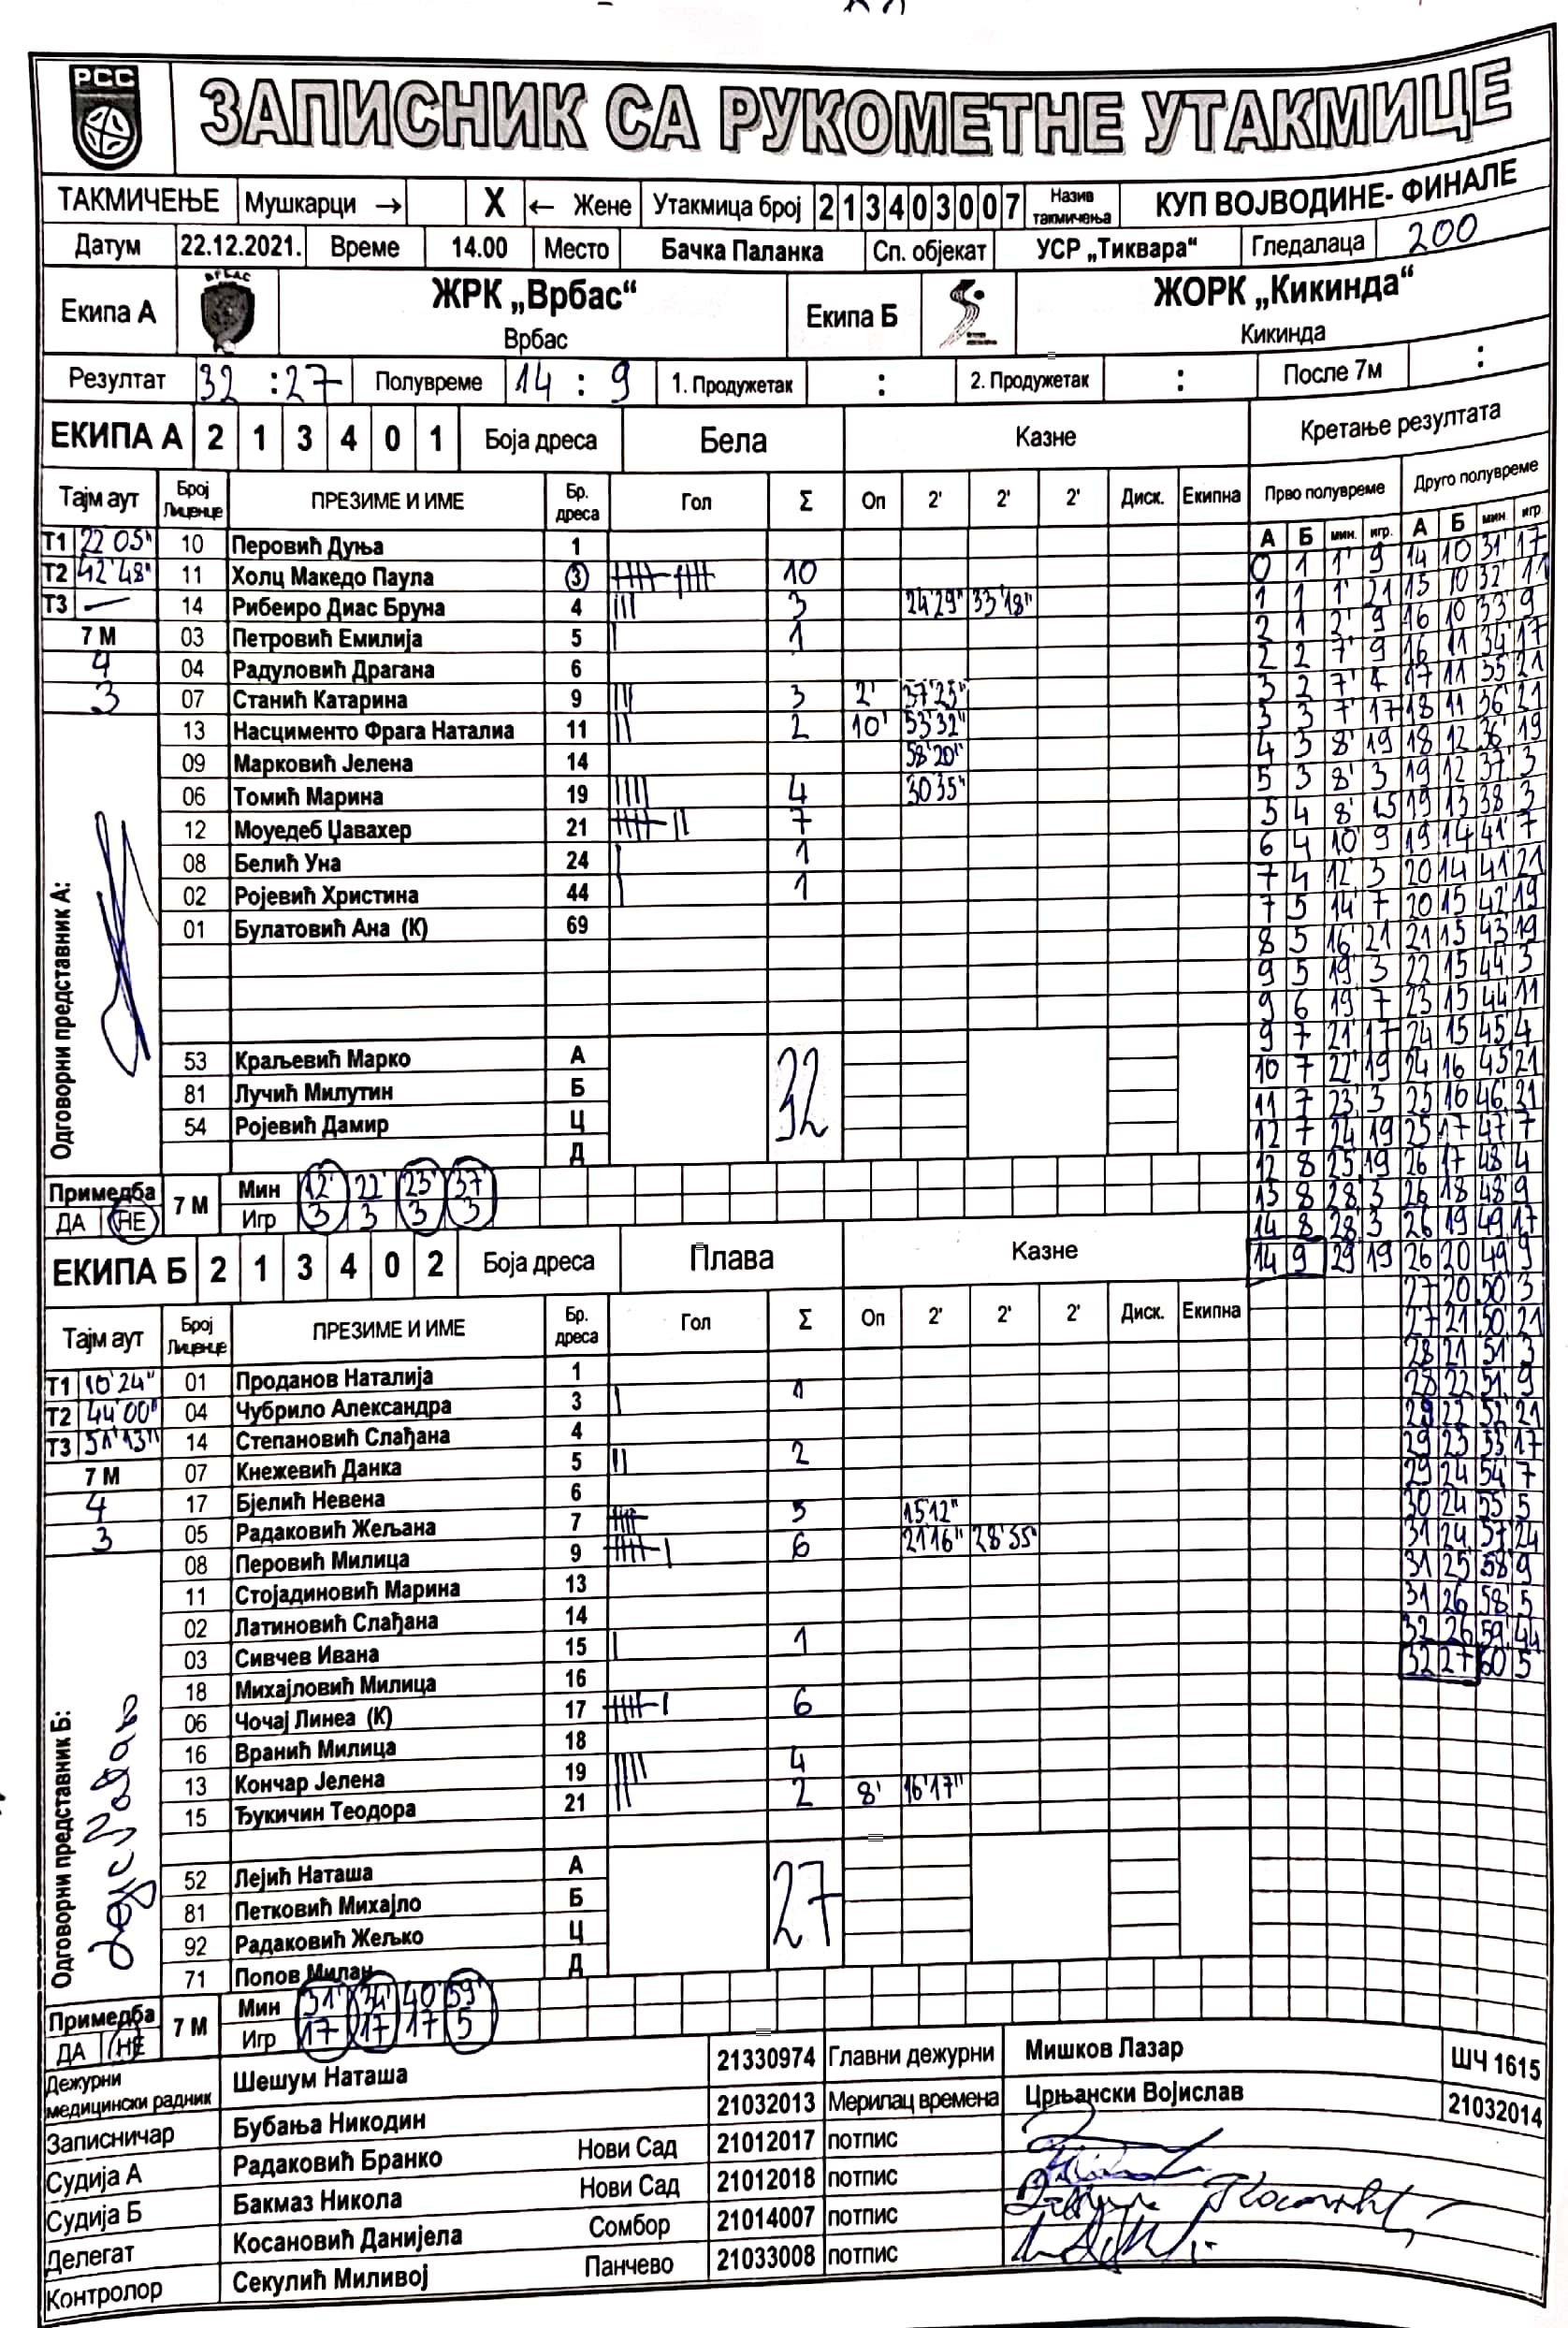 РСС
ЗАПИСНИК СА РУКОМЕТНЕ УТАКМИЦЕ
ТАКМИЧЕЊЕ Мушкарци → X ← Жене Утакмица број 2 1 3 4 0 3 0 0 7 Назив такмичења КУП ВОЈВОДИНЕ- ФИНАЛЕ
Датум 22.12.2021. Време 14.00 Место Бачка Паланка Сп. објекат УСР „Тиквара“ Гледалаца 200
Екипа А ЖРК „Врбас“ Врбас Екипа Б ЖОРК „Кикинда“ Кикинда
Резултат 32 : 27 Полувреме 14 : 9 1. Продужетак : 2. Продужетак : После 7м :
ЕКИПА А 2 1 3 4 0 1 Боја дреса Бела Казне Кретање резултата
Тајм аут Број Лиценце ПРЕЗИМЕ И ИМЕ Бр. дреса Гол Σ Оп 2' 2' 2' Диск. Екипна Прво полувреме Друго полувреме
А Б мин. игр. А Б мин. игр.
Т1 22 05" 10 Перовић Дуња 1
Т2 42'48" 11 Холц Македо Паула 3 10
Т3 — 14 Рибеиро Диас Бруна 4 3 24'29" 33'18"
7 М 03 Петровић Емилија 5 1
4 04 Радуловић Драгана 6
3 07 Станић Катарина 9 3 2' 37'23"
13 Насцименто Фрага Наталиа 11 2 10' 53'32"
09 Марковић Јелена 14 58'20"
06 Томић Марина 19 4 30 35"
12 Моуедеб Џавахер 21 7
08 Белић Уна 24 1
02 Ројевић Христина 44 1
01 Булатовић Ана (К) 69
Одговорни представник А:
53 Краљевић Марко А
81 Лучић Милутин Б 32
54 Ројевић Дамир Ц
Д
Примедба ДА НЕ 7 М Мин 12' 22' 23' 37'
Игр 3 3 3 3
0 1 1' 9 14 10 31' 17
1 1 1' 21 15 10 32' 11
2 1 2' 9 16 10 33' 9
2 2 7' 9 16 11 34' 17
3 2 7' 4 17 11 35' 21
3 3 7' 17 18 11 36' 21
4 3 8' 19 18 12 36' 19
5 3 8' 3 19 12 37' 3
5 4 8' 15 19 13 38' 3
6 4 10' 9 19 14 41' 7
7 4 12' 3 20 14 41' 21
7 5 14' 7 20 15 42' 19
8 5 16' 21 21 15 43' 19
9 5 19' 3 22 15 44' 3
9 6 19 7 23 15 44 11
9 7 21' 17 24 15 45' 4
10 7 22' 19 24 16 45' 21
11 7 23' 3 25 16 46' 21
12 7 24 19 25 17 47' 7
12 8 25' 19 26 17 48' 4
13 8 28' 3 26 18 48' 9
14 8 28' 3 26 19 49' 17
14 9 29' 19 26 20 49' 9
27 20 50' 3
27 21 50' 21
28 21 51' 3
28 22 51' 9
29 22 52' 21
29 23 53' 17
29 24 54' 7
30 24 55' 5
31 24 57' 24
31 25 58' 9
31 26 58' 5
32 26 59' 44
32 27 60' 5
ЕКИПА Б 2 1 3 4 0 2 Боја дреса Плава Казне
Тајм аут Број Лиценце ПРЕЗИМЕ И ИМЕ Бр. дреса Гол Σ Оп 2' 2' 2' Диск. Екипна
Т1 10'24" 01 Проданов Наталија 1
Т2 44'00" 04 Чубрило Александра 3 1
Т3 51'13" 14 Степановић Слађана 4
7 М 07 Кнежевић Данка 5 2
4 17 Бјелић Невена 6
3 05 Радаковић Жељана 7 5 15'12"
08 Перовић Милица 9 6 21'16" 28'55"
11 Стојадиновић Марина 13
02 Латиновић Слађана 14
03 Сивчев Ивана 15 1
18 Михајловић Милица 16
06 Чочај Линеа (К) 17 6
16 Вранић Милица 18
13 Кончар Јелена 19 4
15 Ђукичин Теодора 21 2 8' 16'17"
Одговорни представник Б:
52 Лејић Наташа А
81 Петковић Михајло Б 27
92 Радаковић Жељко Ц
71 Попов Милан Д
Примедба ДА НЕ 7 М Мин 31' 34' 40' 59'
Игр 17 17 17 5
Дежурни медицински радник Шешум Наташа 21330974 Главни дежурни Мишков Лазар ШЧ 1615
Записничар Бубања Никодин 21032013 Мерилац времена Црњански Војислав 21032014
Судија А Радаковић Бранко Нови Сад 21012017 потпис
Судија Б Бакмаз Никола Нови Сад 21012018 потпис
Делегат Косановић Данијела Сомбор 21014007 потпис
Контролор Секулић Миливој Панчево 21033008 потпис